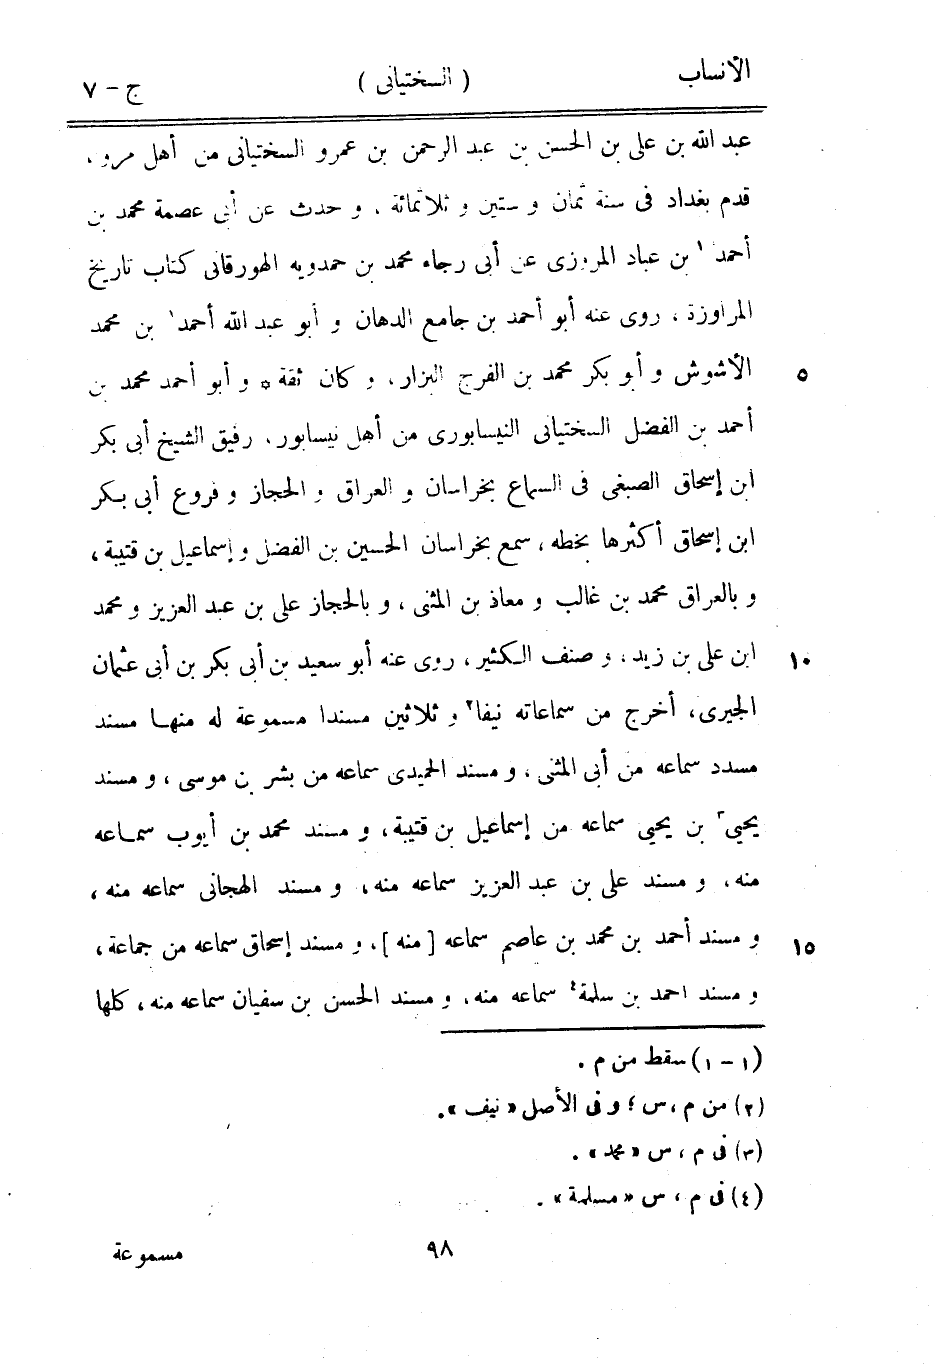 الأنساب ( السختيانى ) ج - ٧
عبد الله بن على بن الحسن بن عبد الرحمن بن عمرو السختيانى من أهل مرو ،
قدم بغداد فى سنة ثمان و ستين و ثلاثمائة ، و حدث عن أبى عصمة محمد بن
أحمد ١ بن عباد المروزى عن أبى رجاء محمد بن حمدويه الهورقانى كتاب تاريخ
المراوزة ، روى عنه أبو أحمد بن جامع الدهان و أبو عبد الله أحمد ١ بن محمد
الأشوش و أبو بكر محمد بن الفرج البزار ، و كان ثقة * و أبو أحمد محمد بن ٥
أحمد بن الفضل السختيانى النيسابورى من أهل نيسابور ، رفيق الشيخ أبى بكر
ابن إسحاق الصبغى فى السماع بخراسان و العراق و الحجاز و فروع أبى بكر
ابن إسحاق أكثرها بخطه ، سمع بخراسان الحسين بن الفضل و إسماعيل بن قتيبة ،
و بالعراق محمد بن غالب و معاذ بن المثنى ، و بالحجاز على بن عبد العزيز و محمد
ابن على بن زيد ، و صنف الكثير ، روى عنه أبو سعيد بن أبى بكر بن أبى عثمان ١٠
الحيرى ، أخرج من سماعاته نيفا ٢ و ثلاثين مسندا مسموعة له منها مسند
مسدد سماعه من أبى المثنى ، و مسند الحميدى سماعه من بشر بن موسى ، و مسند
يحيى ٣ بن يحيى سماعه من إسماعيل بن قتيبة ، و مسند محمد بن أيوب سماعه
منه ، و مسند على بن عبد العزيز سماعه منه ، و مسند الهجانى سماعه منه ،
و مسند أحمد بن محمد بن عاصم سماعه [ منه ] ، و مسند إسحاق سماعه من جماعة ، ١٥
و مسند احمد بن سلمة ٤ سماعه منه ، و مسند الحسن بن سفيان سماعه منه ، كلها
(١ - ١) سقط من م .
(٢) من م ، س ؛ و فى الأصل « نيف » .
(٣) فى م ، س « محمد » .
(٤) فى م ، س « مسلمة » .
٩٨ مسموعة